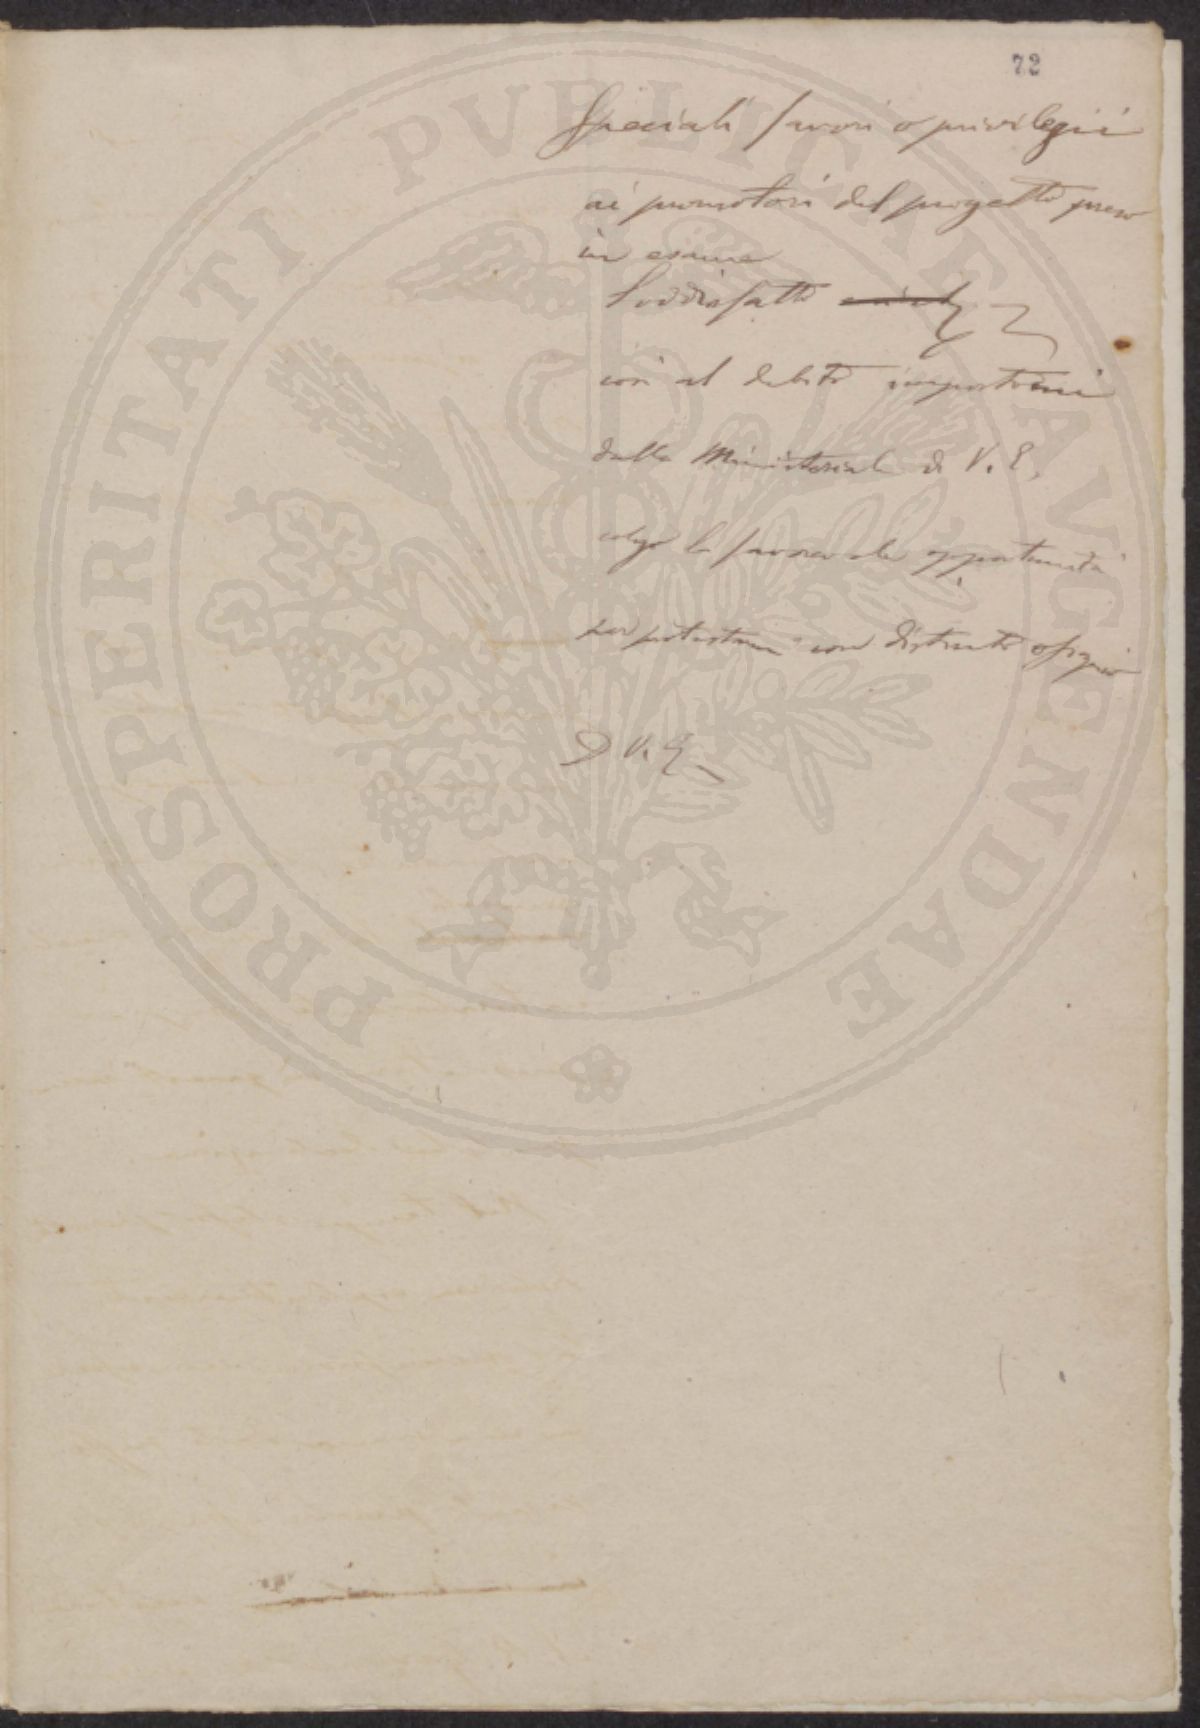 72
Speciali favori o privilegii
ai promotori del progetto preso
in esame
Soddisfatto
così al debito impostomi
dalla Ministeriale di V. E.
colgo la favorevole opportunità
per protestarmi con distinto ossequio
D V. E.
PROSPERITATI PVBLICAE AVGENDAE